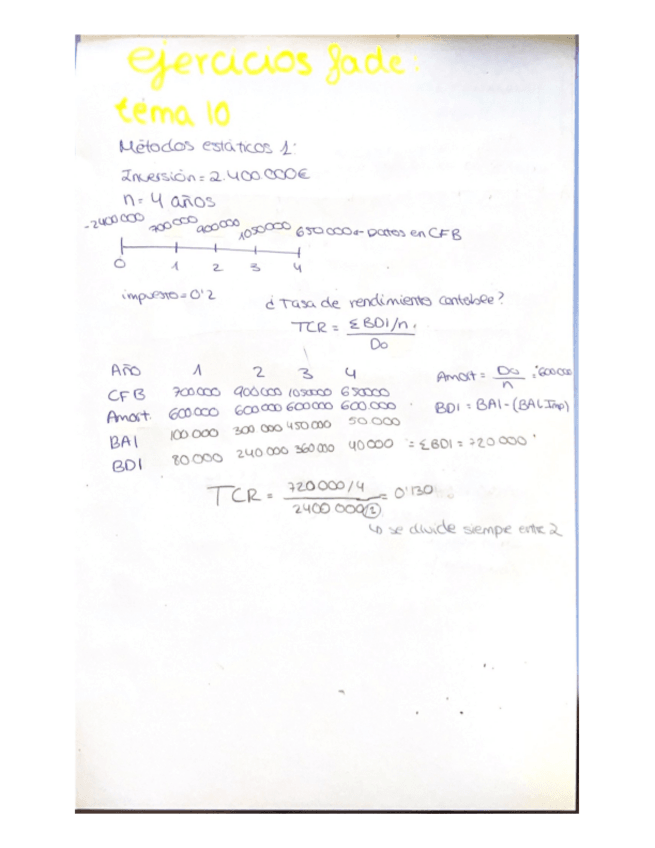 ejercicios fade:
tema 10
Métodos estáticos 1:
Inversión = 2.400 000€
n = 4 años
-2400000 700000 900000 1050000 650000 ← Datos en CFB
0 1 2 3 4
impuesto = 0'2 ¿Tasa de rendimiento contable?
TCR = ΣBDI/n
Do
Año 1 2 3 4
Amort = Do/n = 600000
CFB 700000 900000 1050000 650000
Amort. 600000 600000 600000 600.000
BDI = BAI - (BAI.Imp)
BAI 100000 300 000 450 000 50 000
BDI 80000 240 000 360 000 40 000 = ΣBDI = 720 000
TCR = 720 000/4 = 0'30
2400 000/2
↳ se divide siempre entre 2